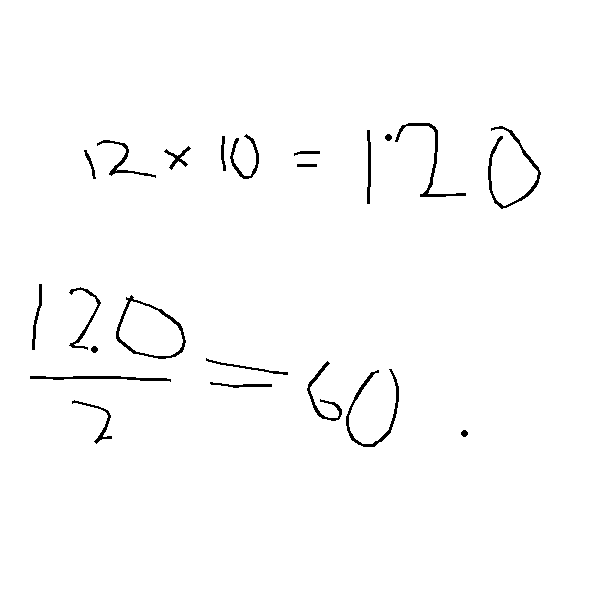 12 × 10 = 120
120/2 = 60 .